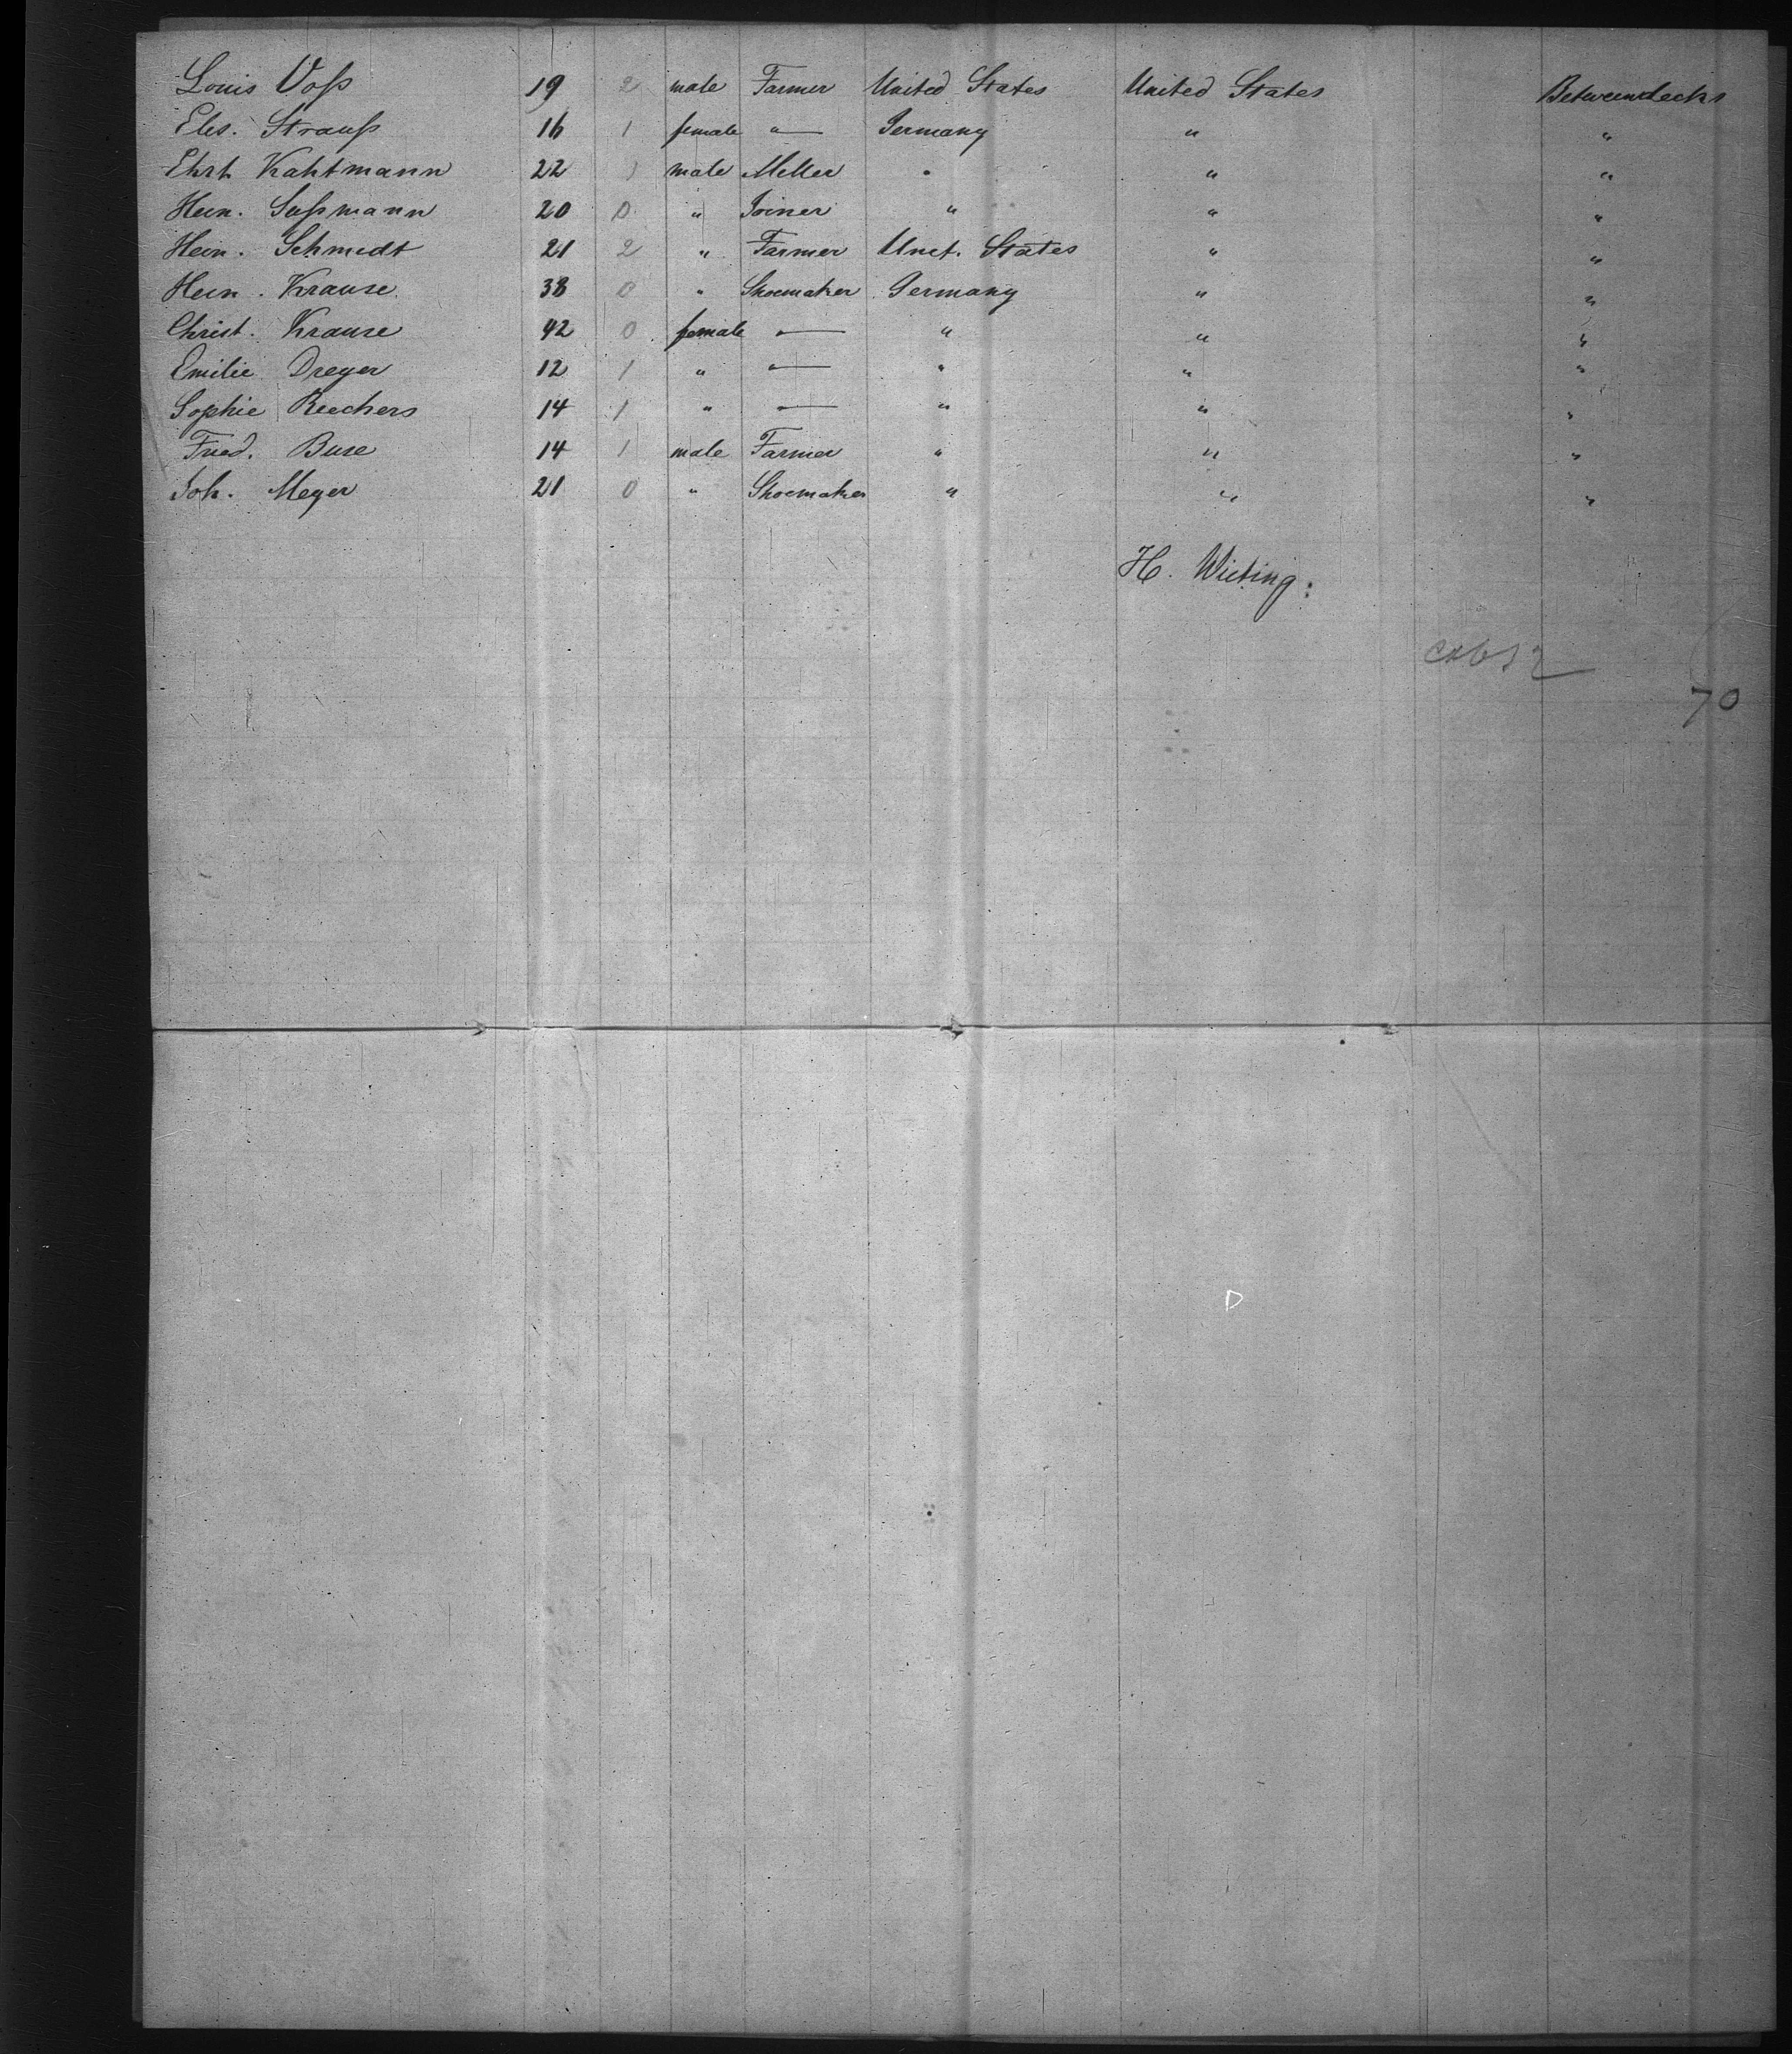 Louis Voß 19 2 male Farmer United States United States Betweendecks
Elis. Strauß 16 1 female " — Germany " "
Ehrh Kahtmann 22 1 male Miller " " "
Hein. Saßmann 20 0 " Joiner " " "
Hein. Schmidt 21 2 " Farmer Unit. States " "
Hein. Krause 38 0 " Shoemaker Germany " "
Christ. Krause 42 0 female — " " "
Emilie Dreyer 12 1 " — " " "
Sophie Reechers 14 1 " — " " "
Fried. Buse 14 1 male Farmer " " "
Joh. Meyer 21 0 " Shoemaker " " "
H. Wieting:
70
D